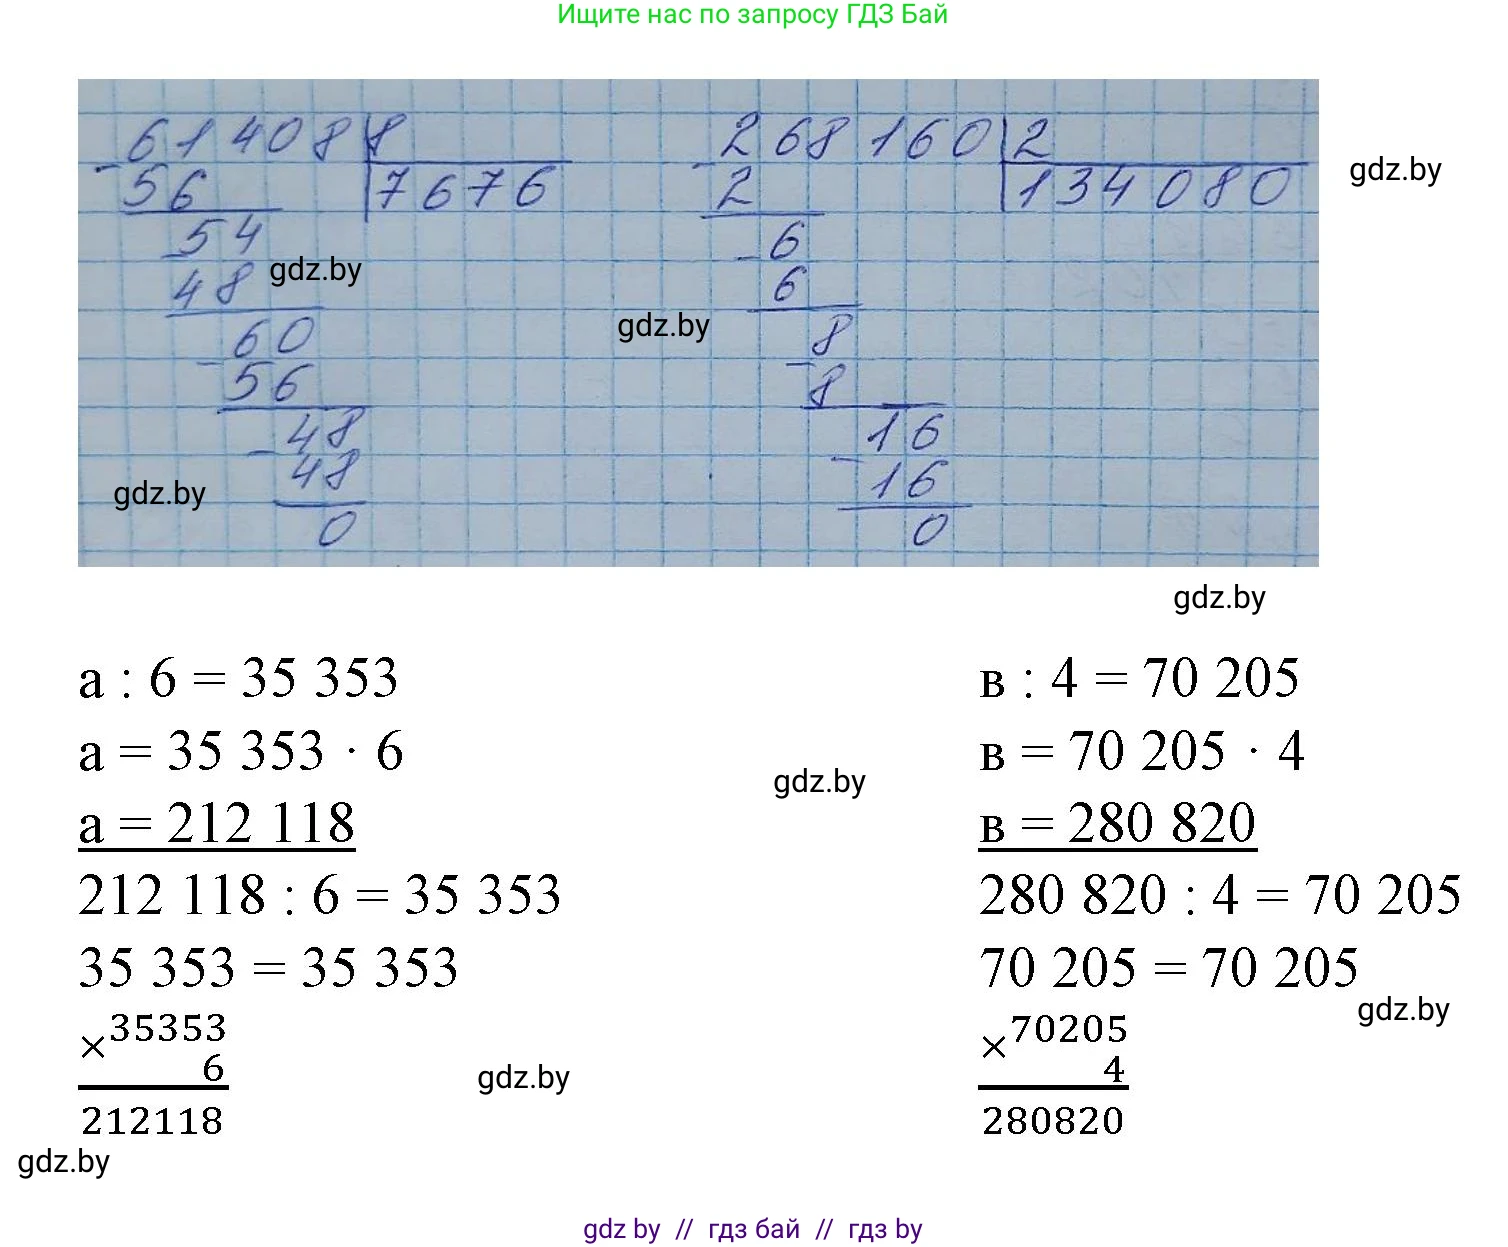 Ищите нас по запросу ГДЗ Бай
61408 8
- 56 7676
54
- 48
60
- 56
48
- 48
0
268160 2
- 2 134080
6
- 6
8
- 8
16
- 16
0
gdz.by
gdz.by
gdz.by
gdz.by
gdz.by
а : 6 = 35 353
а = 35 353 · 6
а = 212 118
212 118 : 6 = 35 353
35 353 = 35 353
× 35353
6
212118
gdz.by
в : 4 = 70 205
в = 70 205 · 4
в = 280 820
280 820 : 4 = 70 205
70 205 = 70 205
× 70205
4
280820
gdz.by
gdz.by
gdz.by
gdz by // гдз бай // гдз by